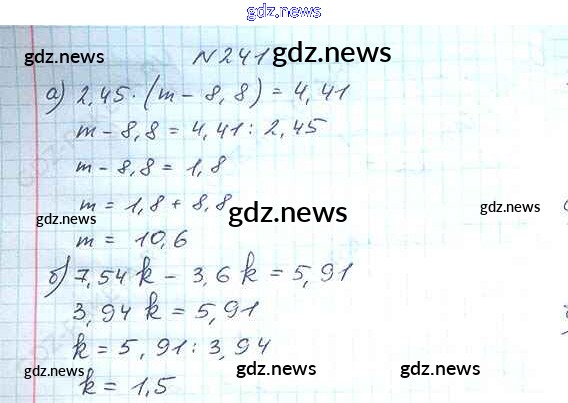 gdz.news
N 241 gdz.news
а) 2,45 · (m - 8,8) = 4,41
gdz.news
m - 8,8 = 4,41 : 2,45
m - 8,8 = 1,8
m = 1,8 + 8,8
gdz.news gdz.news gdz.news
m = 10,6
б) 7,54 k - 3,6 k = 5,91
3,94 k = 5,91
k = 5,91 : 3,94
gdz.news gdz.news gdz.news
k = 1,5